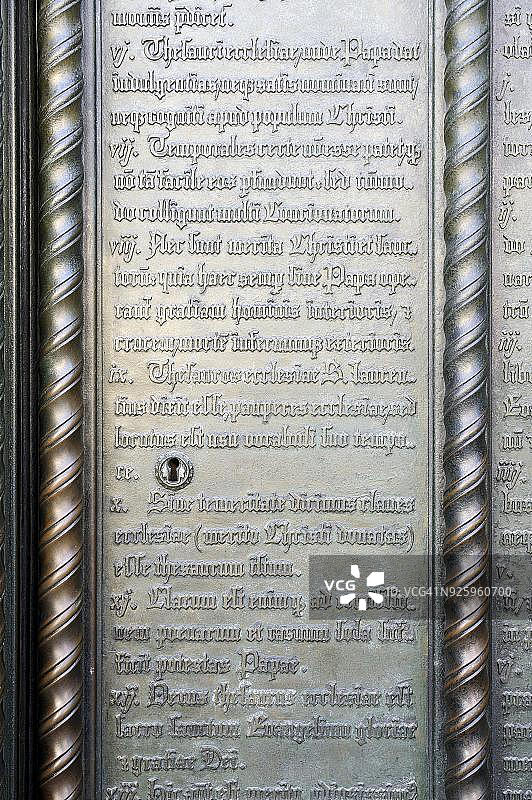 vj. Thesauri ecclesiae, unde Papa dat
indulgentias, neqȝ satis nominati sunt,
neqȝ cogniti apud populum Christi.
vij. Temporales certe nō esse patet, qȝ
nō tā facile eos pfundunt, sed tātum-
do colligunt multi Concionatorum.
viij. Nec sunt merita Christi et sanc-
torū, quia haec semp sine Papa ope-
rant gratiam hominis interioris, &
crucem, mortē infernumqȝ exterioris.
ix. Thesauros ecclesiae S. Lauren-
tius dixit esse, pauperes ecclesiae, sed
locutus est usu vocabuli suo tempo-
re.
x. Sine temeritate dicimus claves
ecclesiae (merito Christi donatas)
esse thesaurum istum.
xj. Clarum est enim, qȝ ad
nem penarum et casuum sola suf-
ficit potestas Papae.
xij. Verus thesaurus ecclesiae est
sacro sanctum Evangelium gloriae
& gratiae Dei.
VCG
VCG41N925960700